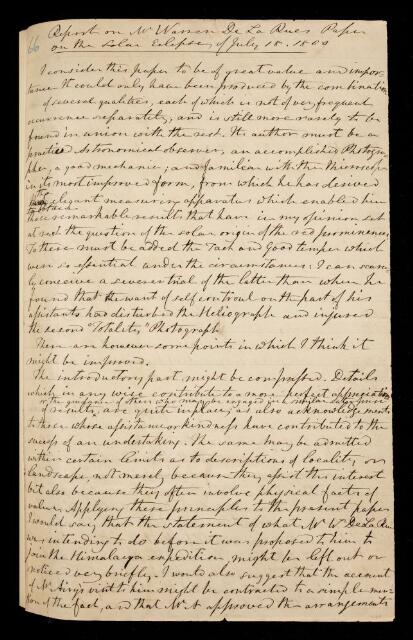 66
Report on Mr Warren De La Rue's Paper
on the Solar Eclipse of July 18. 1860
I consider this paper to be of great value and impor-
tance. It could only have been produced by the combination
of several qualities, each of which is not of very frequent
occurrence separately, and is still more rarely to be
found in union with the rest. Its author must be a
practised Astronomical observer, an accomplished Photogra-
pher, a good mechanic; and familiar with the Microscope
in its most improved form, from which he has derived
the elegant measuring apparatus which enabled him
to obtain
those remarkable results that have in my opinion set
at rest the question of the solar origin of the red prominences.
To these must be added the Tact and Good temper which
were so essential under the circumstances: I can scarce-
ly conceive a severer trial of the latter than when he
found that the want of self control on the part of his
assistants had disturbed the Heliograph and injured
the second "Totality" Photograph.
There are however some points in which I think it
might be improved.
The introductory part might be compressed. Details
which in any wise contribute to a more perfect appreciation
or the guidance of others who may be engaged in similar
of results, are quite in place; as also acknowledgements
to those whose assistance or kindness have contributed to the
success of an undertaking. The same may be admitted
within certain limits as to descriptions of locality or
landscape, not merely because they assist this interest
but also because they often involve physical facts of
value. Applying these principles to the present paper
I would say that the statement of what Mr W De La Rue
was intending to do before it was proposed to him to
join the Himalaya expedition might be left out or
noticed very briefly. I would also suggest that the account
of Mr Airy's visit to him might be contracted to a simple men-
tion of the fact, and that Mr A approved the arrangements